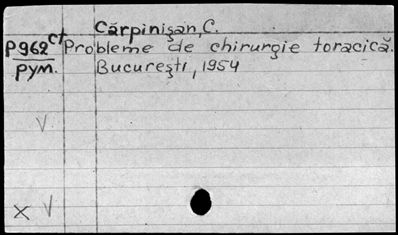 Cărpinişan, C.
P962 ct Probleme de chirurgie toracică.
рум. Bucureşti, 1954
V
x V